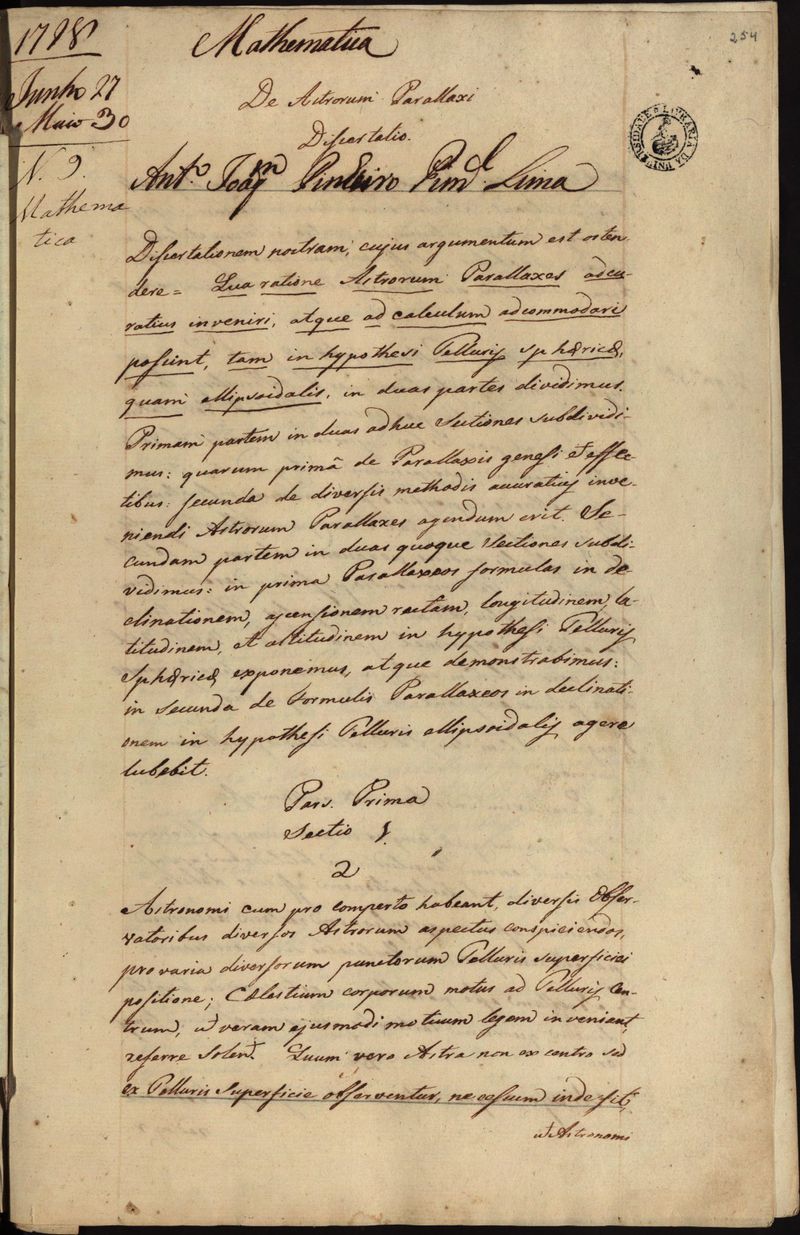 1798
Junho 27
Maio 30
N. 9.
Mathema
tica
Mathematica
254
De Astrorum Parallaxi
Dissertatio.
LIVRARIA DA UNIVERSIDADE
Ant.º Joaq.m Pinheiro Pim.l Lima
Dissertationem nostram, cujus argumentum est osten
dere = Qua ratione Astrorum Parallaxes adcu-
ratius inveniri, atque ad calculum adcommodari
possint, tam in hypothesi Telluris sphæricæ,
quam ellipsoidalis, in duas partes dividimus.
Primam partem in duas adhuc Sectiones subdividi-
mus: quarum primâ de Parallaxis genesi et affec
tibus: secunda de diversis methodis accuratius inve-
niendi Astrorum Parallaxes agendum erit. Se-
cundam partem in duas quoque Sectiones subdi-
vidimus: in prima Parallaxeos formulas in de
clinationem, ascensionem rectam, longitudinem, la-
titudinem, et altitudinem in hypothesi Telluris
Sphæricæ exponemus, atque demonstrabimus:
in secunda de Formulis Parallaxeos in declinati-
onem in hypothesi Telluris ellipsoidalis agere
lubebit.
Pars. Prima
Sectio 1.
2
Astronomi cum pro comperto habeant, diversis Obser-
vatoribus diversos Astrorum aspectus conspiciendos,
pro varia diversorum punctorum Telluris Superficiei
positione; Cælestium corporum motus ad Telluris Cen-
trum, ut veram ejusmodi motuum legem inveniant,
referre solent. Quum vero Astra non ex centro sed
ex Telluris Superficie observentur, necessum inde fit,
ut Astronomi